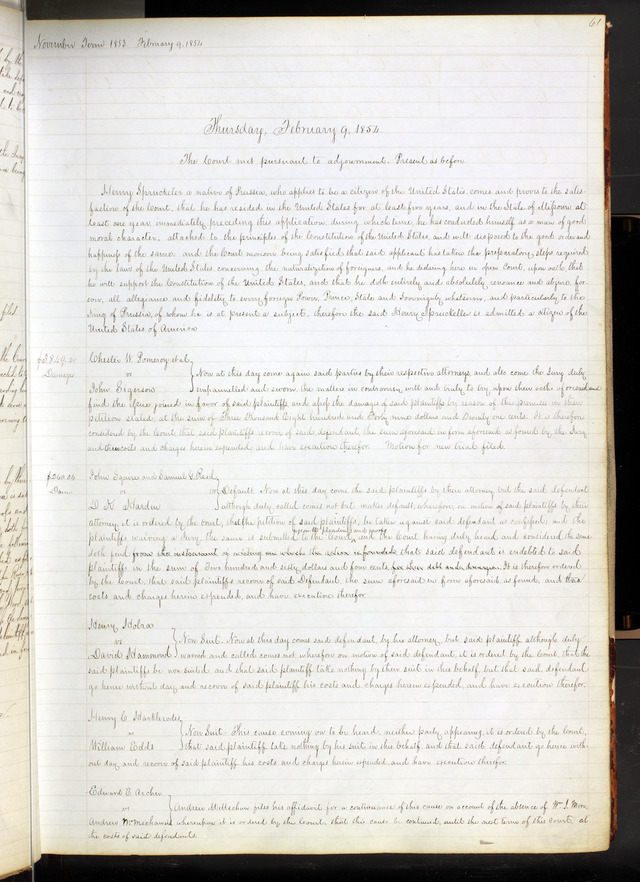 61
November Term 1853 February 9, 1854
Thursday, February 9, 1854
The Court met pursuant to adjournment. Present as before
Henry Spruckeler a native of Prussia, who applies to be a citizen of the United States, comes and proves to the satis-
faction of the Court, that he has resided in the United States for at least five years, and in the State of Missouri at
least one year immediately preceding this application, during which time he has conducted himself as a man of good
moral character, attached to the principles of the Constitution of the United States, and well disposed to the good order and
happiness of the same. and the Court moreover being satisfied that said applicant has taken the preparatory steps required
by the laws of the United States concerning the naturalization of foreigners, and he declaring here in open Court, upon oath, that
he will support the Constitution of the United States, and that he doth entirely and absolutely renounce and abjure, for-
ever, all allegiance and fidelity to every foreign Power, Prince, State and Sovereignty whatever, and particularly to the
King of Prussia, of whom he is at present a subject, therefore the said Henry Spruckeller is admitted a citizen of the
United States of America
$3849.20 Chester W. Pomeroy et al
Damages vs Now at this day come again said parties by their respective attorneys and also come the Jury duly
John Sigerson empannelled and sworn the matters in controversy well and truly to try, upon their oaths
find the issue joined in favor of said plaintiffs and assess the damages of said plaintiffs by reason of the premises in their
petition stated, at the sum of Three Thousand Eight hundred and forty nine dollars and Twenty one cents. It is therefore
considered by the Court that said plaintiffs recover of said defendant, the sum aforesaid in form aforesaid as found by the Jury
and their costs and charges herein expended and have execution therefor. Motion for new trial filed.
$260.04 John Squires and Samuel G. Reed
Dam vs Default. Now at this day come the said plaintiffs by their attorney but the said defendant
D. K. Hardin although duly called comes not but makes default, wherefore, on motion of said plaintiffs by their
attorney it is ordered by the Court, that the petition of said plaintiffs, be taken against said defendant as confessed; and the
plaintiffs waiving a Jury, the same is submitted to the Court, and the Court having duly heard and considered the same
doth find from the instrument of writing on which the action is founded that said defendant is indebted to said
plaintiffs in the sum of Two hundred and sixty dollars and four cents, for their debt and damages. It is therefore ordered
by the Court, that said plaintiffs recover of said Defendant the sum aforesaid in form aforesaid as found, and their
costs and charges herein expended, and have execution therefor
Henry Holra
vs Non Suit. Now at this day comes said defendant, by his attorney, but said plaintiff although duly
David Hammond warned and called comes not wherefore on motion of said defendant, it is ordered by the Court, that the
said plaintiffs be non suited and that said plaintiff take nothing by their suit in this behalf, but that said defendant
go hence without day and recover of said plaintiff his costs and charges herein expended, and have execution therefor.
Henry C. Harklerodes
vs Non Suit. This cause coming on to be heard, neither party appearing, it is ordered by the Court,
William Edds that said plaintiff take nothing by his suit in this behalf, and that said defendant go hence with-
out day and recover of said plaintiff his costs and charges herein expended, and have execution therefor.
Edward E. Archer
vs Andrew McMechan files his affidavit for a continuance of this cause on account of the absence of Wm J.
Andrew McMechan whereupon it is ordered by the Court, that this cause be continued, until the next term of this Court, at
the costs of said defendant.